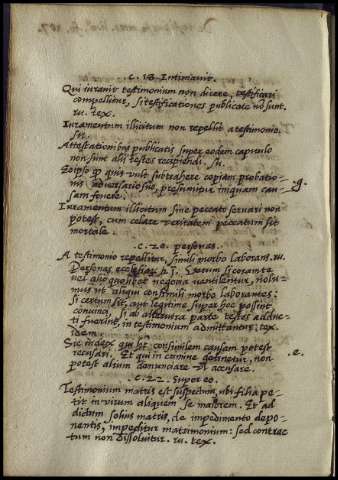 c. 18 Intimavit.
Qui iuravit testimonium non dicere, testificari
compellitur, si testificationes publicate nõ sunt.
ru. tex.
Iuramentum illicitum non repellit a testimonio.
sit.
Attestationibus publicatis super eodem capitulo
non sunt alij testes recipiendi. su.
Eo ipso qp quis vult subtrahere copiam probatio-
nis adversario suo, presumitur iniquam cau-
sam fovere.
Iuramentum illicitum sine peccato servari non
potest, cum celare veritatem peccatum sit
mortale.
c. 20. personas.
A testimonio repellitur, simili morbo laborans. ru.
Personas ecclesias. p. 3. Verum si coram te
vel alio negocia ventilentur, nolu-
mus ut aliqui consimili morbo laborantes:
si certum sit, aut legitime super hoc possint
convinci, si ab altera parte testes addu-
ti fuerint, in testimonium admittantur. tex.
idem.
Sic index qui sit consimilem causam potest
recusari. Et qui in crimine detinetur, non
potest alium denunciare vel accusare.
e.
c. 22. Super eo.
Testimonium matris est suspectum, ubi filia pe-
tit in virum aliquem se maiorem. Et ad
dictum solius matris, de impedimento depo-
nentis, impeditur matrimonium: sed contrac
tum non dissolvitur. ru. tex.